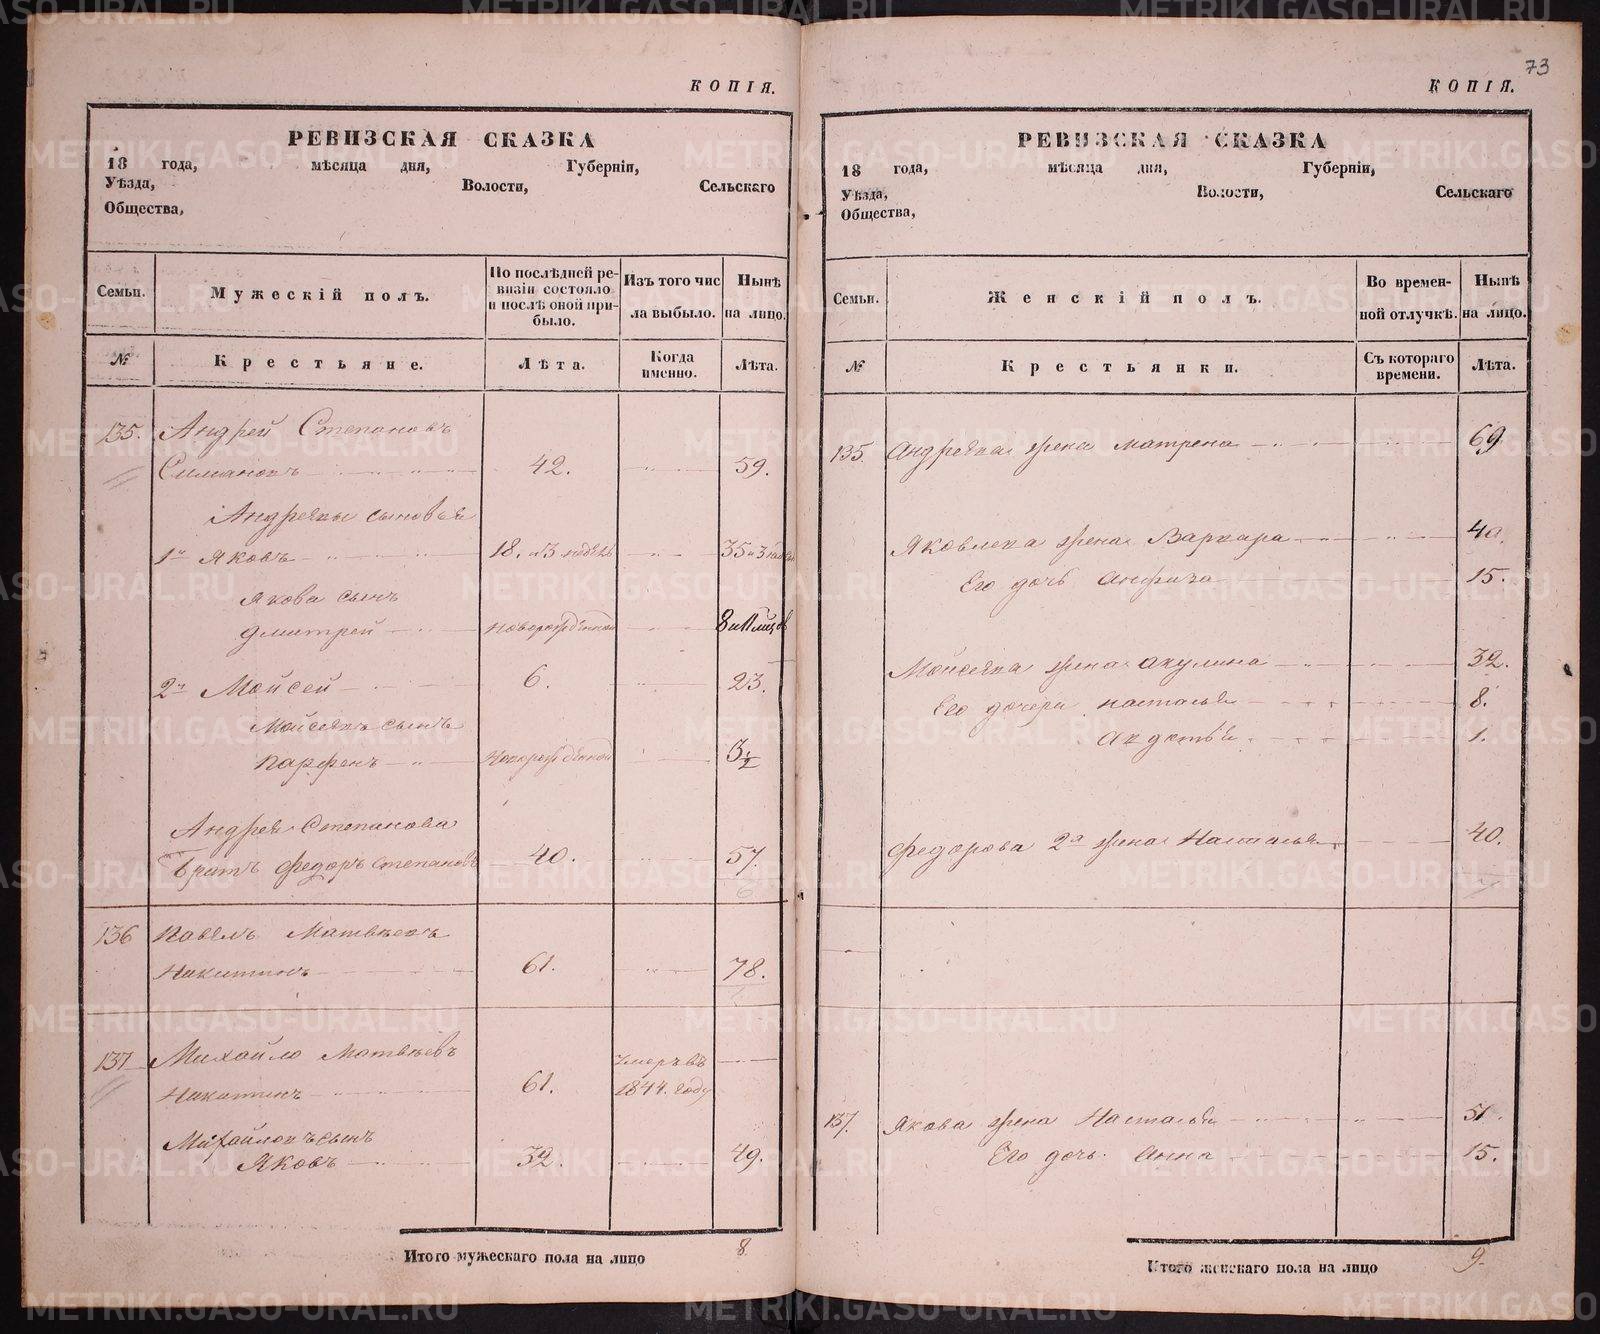 КОПІЯ.
РЕВИЗСКАЯ СКАЗКА
18 года, мѣсяца дня, Губерніи,
Уѣзда, Волости, Сельскаго
Общества,
Семьи.
Мужескій полъ.
По послѣдней ре-
визіи состояло
и послѣ оной при-
было.
Изъ того чис
ла выбыло.
Нынѣ
на лицо.
№
Крестьяне.
Лѣта.
Когда
именно.
Лѣта.
135. Андрей Степановъ
Симановъ 42. 59.
Андреявы сыновья
1й Яковъ 18. и 3 недѣль 35 и 3 недѣль
Якова сынъ
Дмитрей новорожденной 8 и 11 мѣсцов
2й Мойсей 6. 23.
Мойсеявъ сынъ
Парфенъ новорожденной 3 1/2
Андрея Степанова
братъ Федоръ Степановъ 40. 57.
6
136 Павелъ Матвѣевъ
Накитинъ 61. 78.
1
137 Михайло Матвѣевъ Умеръ въ
Накитинъ 61. 1844. году
Михайловъ сынъ
Яковъ 32. 49.
Итого мужескаго пола на лицо 8
73
КОПІЯ.
РЕВИЗСКАЯ СКАЗКА
18 года, мѣсяца дня, Губерніи,
Уѣзда, Волости, Сельскаго
Общества,
Семьи.
Женскій полъ.
Во времен-
ной отлучкѣ.
Нынѣ
на лицо.
№
Крестьянки.
Съ котораго
времени.
Лѣта.
135. Андреява жена Матрена 69
Яковлева жена Варвара 40.
Его дочь Анфиза 15.
Мойсеява жена Акулина 32.
Его дочери Настасья 8.
Авдотья 1.
Федорова 2я жена Настасья 40.
137. Якова жена Настасья 51.
Его дочь Анна 15.
Итого женскаго пола на лицо 9.
METRIKI.GASO-URAL.RU